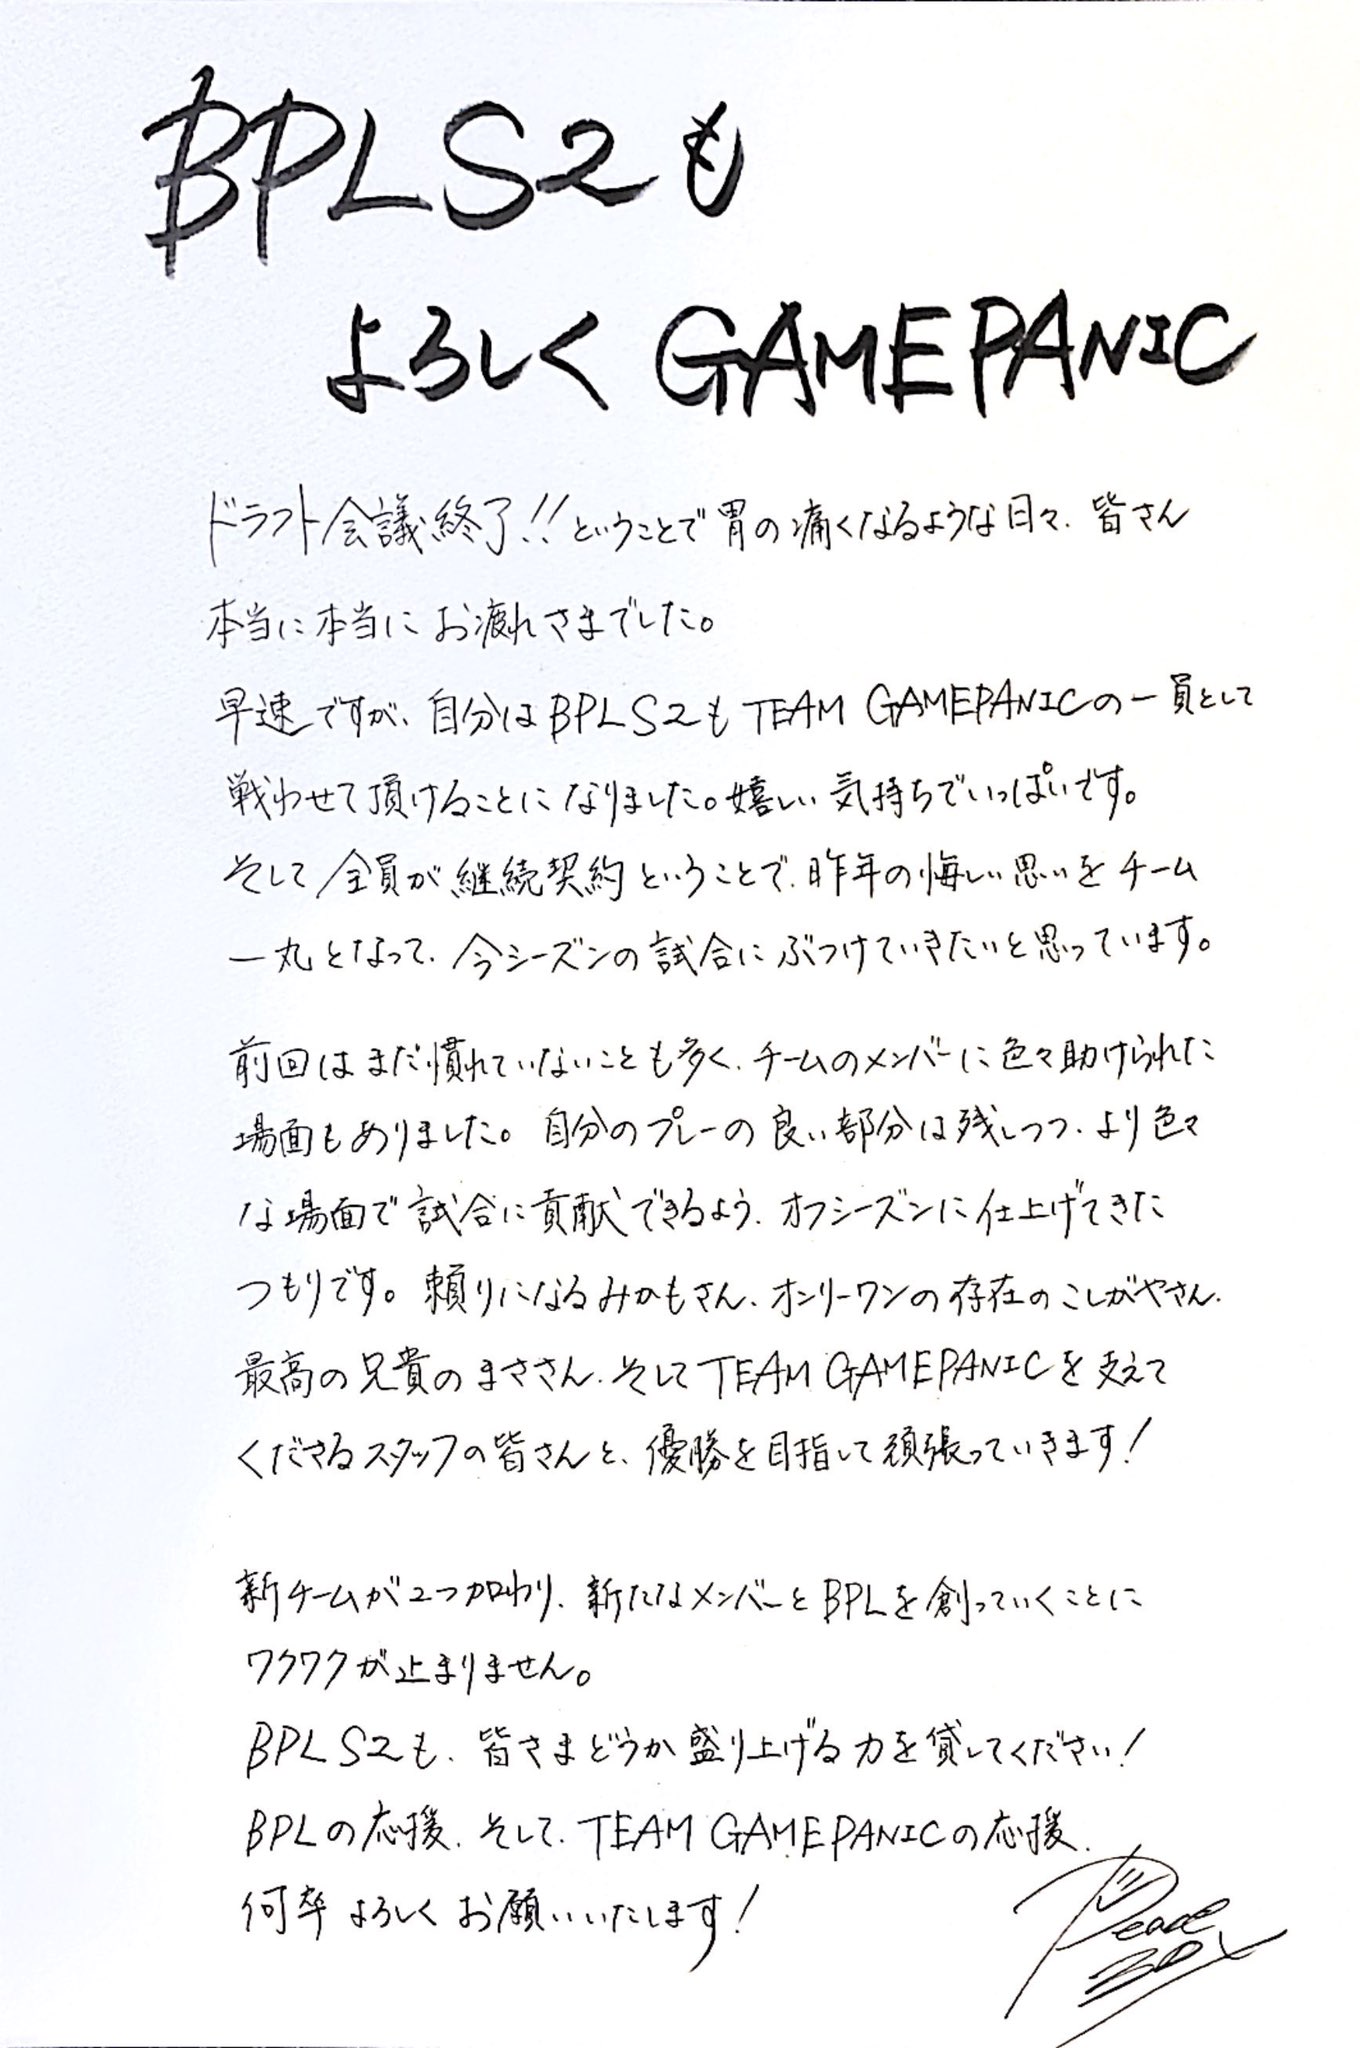 BPLS2も
よろしくGAMEPANIC
ドラフト会議終了!!ということで胃の痛くなるような日々、皆さん
本当に本当にお疲れさまでした。
早速ですが、自分はBPLS2もTEAM GAMEPANICの一員として
戦わせて頂けることになりました。嬉しい気持ちでいっぱいです。
そして全員が継続契約ということで、昨年の悔しい思いをチーム
一丸となって、今シーズンの試合にぶつけていきたいと思っています。
前回はまだ慣れていないことも多く、チームのメンバーに色々助けられた
場面もありました。自分のプレーの良い部分は残しつつ、より色々
な場面で試合に貢献できるよう、オフシーズンに仕上げてきた
つもりです。頼りになるみかもさん、オンリーワンの存在のこしがやさん、
最高の兄貴のまささん、そしてTEAM GAMEPANICを支えて
くださるスタッフの皆さんと、優勝を目指して頑張っていきます!
新チームが2つ加わり、新たなメンバーとBPLを創っていくことに
ワクワクが止まりません。
BPLS2も、皆さまどうか盛り上げる力を貸してください!
BPLの応援、そして、TEAM GAMEPANICの応援、
何卒よろしくお願いいたします!
Peace